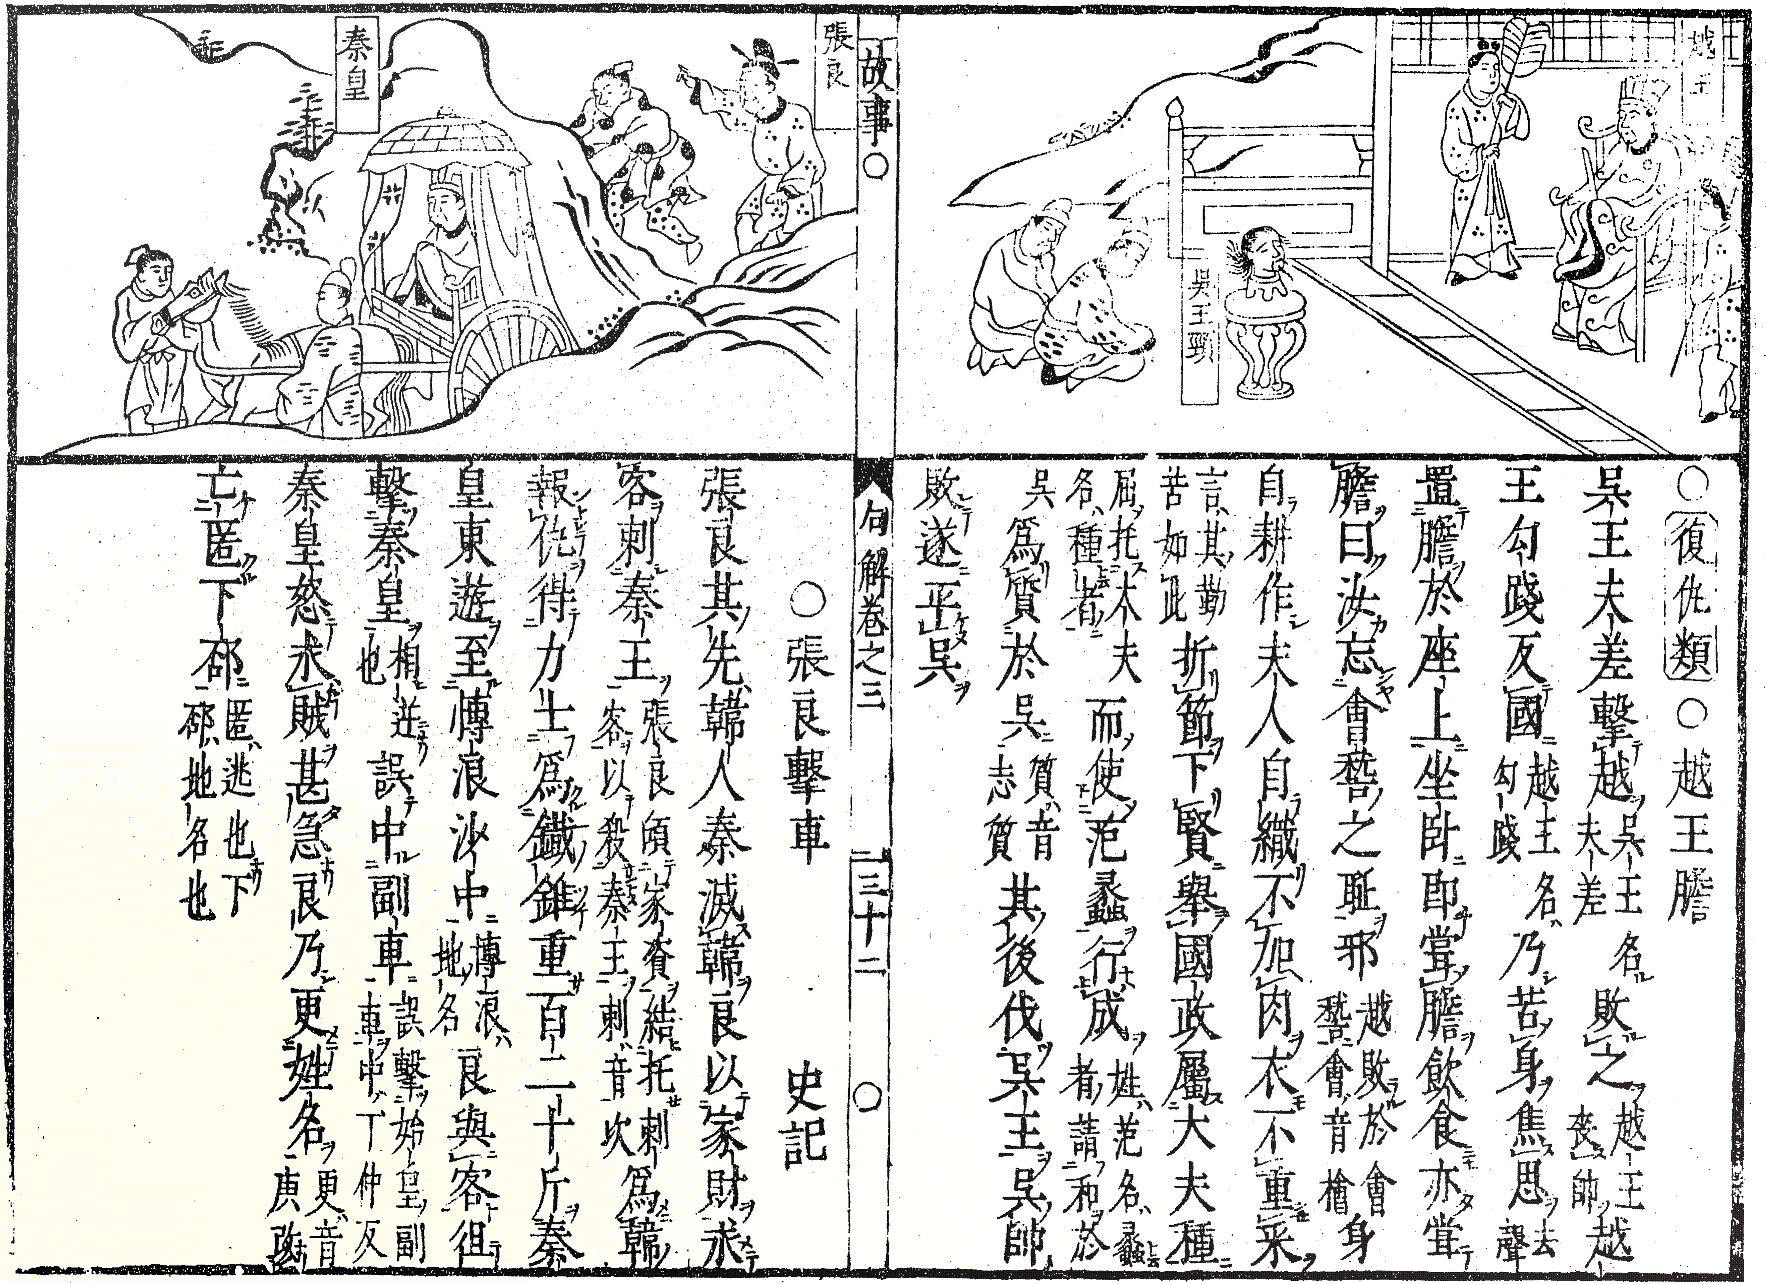 越王
吳王頸
○復仇類○越王膽
吳王夫差擊越吳王名夫差敗之越王喪師越
王勾踐反國越王名勾踐乃苦身焦思去聲
置膽於座上坐卧即嘗膽飲食亦嘗
膽曰汝忘會嵆之耻邪越敗於會嵆會音檜身
自耕作夫人自織不加肉衣不重采
言其勤苦如此折節下賢舉國政屬大夫種
屈托大夫名種者而使范蠡行成姓范名蠡者請和於
吳爲質於吳質音志質其後伐吳王吳師
敗遂平吳
故事○
句解巻之三
三十二
○
張良
秦皇
○張良擊車 史記
張良其先韓人秦滅韓良以家財求
客刺秦王張良傾家資結托刺客以殺秦王刺音次爲韓
報仇得力士爲鐵錐重百二十斤秦
皇東遊至博浪沙中博浪地名良與客徂
擊秦皇相並也誤中副車誤擊始皇副車中丁仲反
秦皇怒求賊甚急良乃更姓名更音庚改
亡匿下邳匿逃也下邳地名也